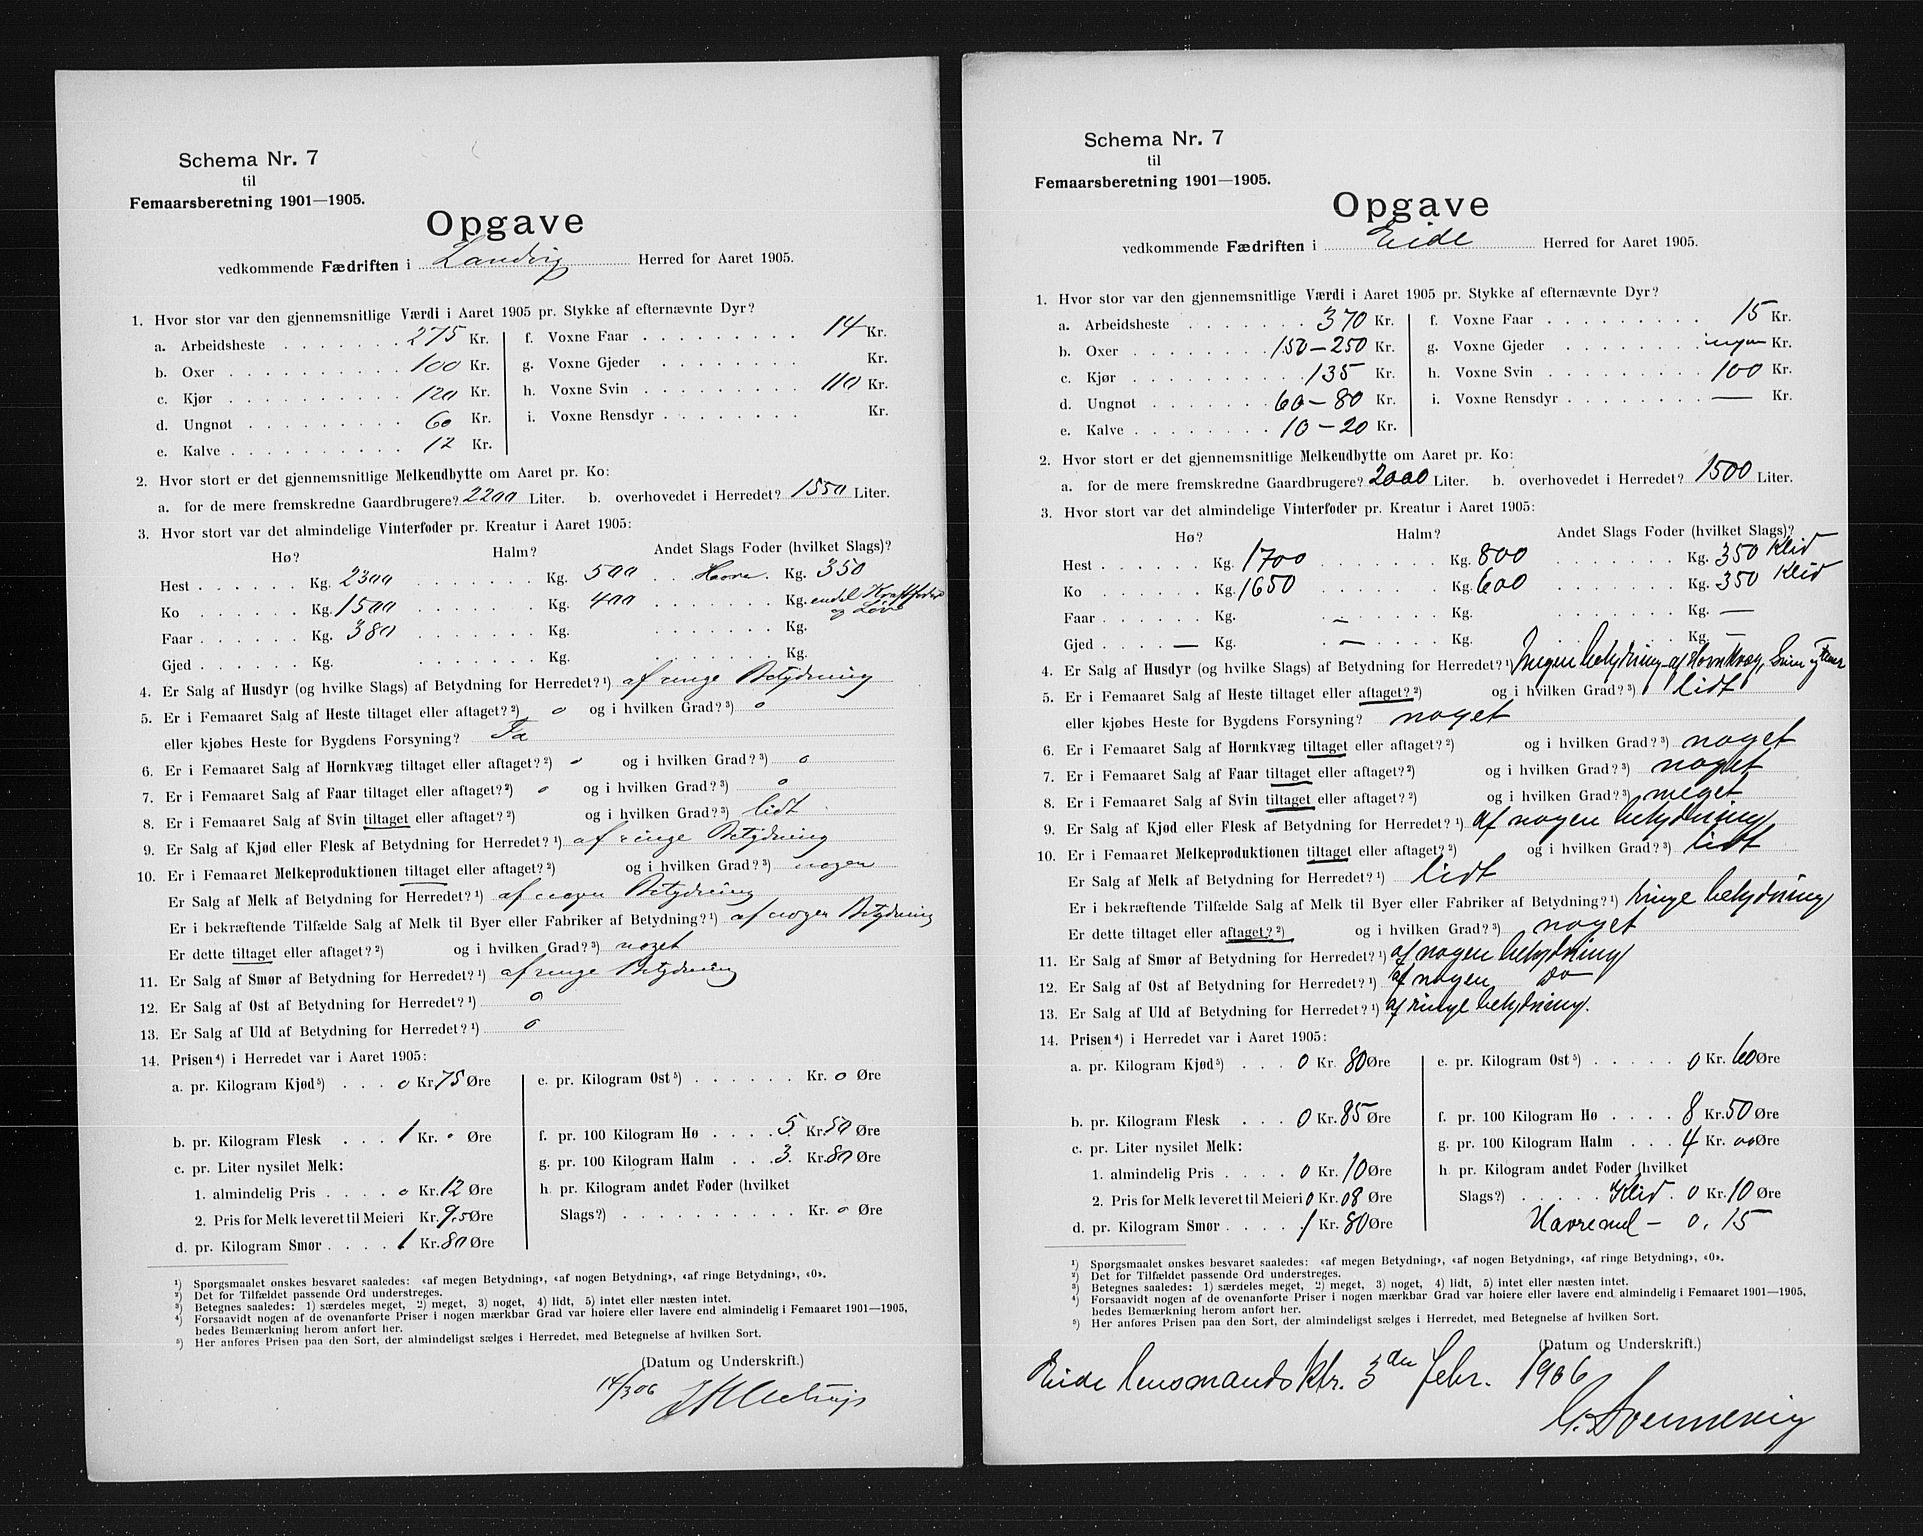 Schema Nr. 7
til
Femaarsberetning 1901—1905.
Opgave
vedkommende Fædriften i Landvig Herred for Aaret 1905.
1. Hvor stor var den gjennemsnitlige Værdi i Aaret 1905 pr. Stykke af efternævnte Dyr?
a. Arbeidsheste . . . . . . . 275 Kr.
b. Oxer . . . . . . . . . . 100 Kr.
c. Kjør . . . . . . . . . . 120 Kr.
d. Ungnøt . . . . . . . . . 60 Kr.
e. Kalve . . . . . . . . . . 12 Kr.
f. Voxne Faar . . . . . . . . . 14 Kr.
g. Voxne Gjeder . . . . . . . . Kr.
h. Voxne Svin . . . . . . . . . 110 Kr.
i. Voxne Rensdyr . . . . . . . . Kr.
2. Hvor stort er det gjennemsnitlige Melkeudbytte om Aaret pr. Ko:
a. for de mere fremskredne Gaardbrugere? 2200 Liter. b. overhovedet i Herredet? 1550 Liter.
3. Hvor stort var det almindelige Vinterfoder pr. Kreatur i Aaret 1905:
Hø? Halm? Andet Slags Foder (hvilket Slags)?
Hest . . . . . . Kg. 2300 . . . . . . . Kg. 500 . . Havre. Kg. 350
Ko . . . . . . . Kg. 1500 . . . . . . . Kg. 400 . . . . . . . . Kg. endel Kraftfoder
og Løv
Faar . . . . . . Kg. 380 . . . . . . . Kg. . . . . . . . . Kg.
Gjed . . . . . . Kg. . . . . . . . Kg. . . . . . . . . Kg.
4. Er Salg af Husdyr (og hvilke Slags) af Betydning for Herredet?¹) af ringe Betydning
5. Er i Femaaret Salg af Heste tiltaget eller aftaget?²) o og i hvilken Grad?³) o
eller kjøbes Heste for Bygdens Forsyning? Ja
6. Er i Femaaret Salg af Hornkvæg tiltaget eller aftaget?²) o og i hvilken Grad?³) o
7. Er i Femaaret Salg af Faar tiltaget eller aftaget?²) o og i hvilken Grad?³) o
8. Er i Femaaret Salg af Svin tiltaget eller aftaget?²) og i hvilken Grad?³) lidt
9. Er Salg af Kjød eller Flesk af Betydning for Herredet?¹) af ringe Betydning
10. Er i Femaaret Melkeproduktionen tiltaget eller aftaget?²) og i hvilken Grad?³) nogen
Er Salg af Melk af Betydning for Herredet?¹) af nogen Betydning
Er i bekræftende Tilfælde Salg af Melk til Byer eller Fabriker af Betydning?¹) af nogen Betydning
Er dette tiltaget eller aftaget?²) og i hvilken Grad?³) noget
11. Er Salg af Smør af Betydning for Herredet?¹) af ringe Betydning
12. Er Salg af Ost af Betydning for Herredet?¹) o
13. Er Salg af Uld af Betydning for Herredet?¹) o
14. Prisen⁴) i Herredet var i Aaret 1905:
a. pr. Kilogram Kjød⁵) . . . o Kr. 75 Øre
b. pr. Kilogram Flesk . . . 1 Kr. o Øre
c. pr. Liter nysilet Melk:
1. almindelig Pris . . . . o Kr. 12 Øre
2. Pris for Melk leveret til Meieri Kr. 9,5 Øre
d. pr. Kilogram Smør . . . . 1 Kr. 80 Øre
e. pr. Kilogram Ost⁵) . . . . . . Kr. o Øre
f. pr. 100 Kilogram Hø . . . . 5 Kr. 50 Øre
g. pr. 100 Kilogram Halm . . . 3 Kr. 80 Øre
h. pr. Kilogram andet Foder (hvilket
Slags?) . . . . . . . . . . Kr. o Øre
¹) Spørgsmaalet ønskes besvaret saaledes: «af megen Betydning», «af nogen Betydning», «af ringe Betydning», «0».
²) Det for Tilfældet passende Ord understreges.
³) Betegnes saaledes: 1) særdeles meget, 2) meget, 3) noget, 4) lidt, 5) intet eller næsten intet.
⁴) Forsaavidt nogen af de ovenanførte Priser i nogen mærkbar Grad var høiere eller lavere end almindelig i Femaaret 1901—1905,
bedes Bemærkning herom anført her.
⁵) Her anføres Prisen paa den Sort, der almindeligst sælges i Herredet, med Betegnelse af hvilken Sort.
(Datum og Underskrift.)
14/3 06
Schema Nr. 7
til
Femaarsberetning 1901—1905.
Opgave
vedkommende Fædriften i Eide Herred for Aaret 1905.
1. Hvor stor var den gjennemsnitlige Værdi i Aaret 1905 pr. Stykke af efternævnte Dyr?
a. Arbeidsheste . . . . . . . 370 Kr.
b. Oxer . . . . . . . . 150 – 250 Kr.
c. Kjør . . . . . . . . . 135 Kr.
d. Ungnøt . . . . . . . 60 – 80 Kr.
e. Kalve . . . . . . . . 10 – 20 Kr.
f. Voxne Faar . . . . . . . . . 15 Kr.
g. Voxne Gjeder . . . . . . . ingen Kr.
h. Voxne Svin . . . . . . . . . 100 Kr.
i. Voxne Rensdyr . . . . . . . . — Kr.
2. Hvor stort er det gjennemsnitlige Melkeudbytte om Aaret pr. Ko:
a. for de mere fremskredne Gaardbrugere? 2000 Liter. b. overhovedet i Herredet? 1500 Liter.
3. Hvor stort var det almindelige Vinterfoder pr. Kreatur i Aaret 1905:
Hø? Halm? Andet Slags Foder (hvilket Slags)?
Hest . . . . . . Kg. 1700 . . . . . . . Kg. 800 . . . . . . . . Kg. 350 Klid
Ko . . . . . . . Kg. 1650 . . . . . . . Kg. 600 . . . . . . . . Kg. 350 Klid
Faar . . . . . . Kg. — Kg. . . . . . . . . Kg. —
Gjed . . . . . — Kg. — Kg. . . . . . . . . Kg. —
4. Er Salg af Husdyr (og hvilke Slags) af Betydning for Herredet?¹) Megen betydning af Hornkvæg, Svin og Faar
5. Er i Femaaret Salg af Heste tiltaget eller aftaget?²) og i hvilken Grad?³) lidt
eller kjøbes Heste for Bygdens Forsyning? noget
6. Er i Femaaret Salg af Hornkvæg tiltaget eller aftaget?²) og i hvilken Grad?³) noget
7. Er i Femaaret Salg af Faar tiltaget eller aftaget?²) og i hvilken Grad?³) noget
8. Er i Femaaret Salg af Svin tiltaget eller aftaget?²) og i hvilken Grad?³) meget
9. Er Salg af Kjød eller Flesk af Betydning for Herredet?¹) af nogen betydning
10. Er i Femaaret Melkeproduktionen tiltaget eller aftaget?²) og i hvilken Grad?³) lidt
Er Salg af Melk af Betydning for Herredet?¹) lidt
Er i bekræftende Tilfælde Salg af Melk til Byer eller Fabriker af Betydning?¹) ringe betydning
Er dette tiltaget eller aftaget?²) og i hvilken Grad?³) noget
11. Er Salg af Smør af Betydning for Herredet?¹) af nogen betydning
12. Er Salg af Ost af Betydning for Herredet?¹) af nogen Do
13. Er Salg af Uld af Betydning for Herredet?¹) af ringe betydning.
14. Prisen⁴) i Herredet var i Aaret 1905:
a. pr. Kilogram Kjød⁵) . . . 0 Kr. 80 Øre
b. pr. Kilogram Flesk . . . 0 Kr. 85 Øre
c. pr. Liter nysilet Melk:
1. almindelig Pris . . . . 0 Kr. 10 Øre
2. Pris for Melk leveret til Meieri 0 Kr. 08 Øre
d. pr. Kilogram Smør . . . . 1 Kr. 80 Øre
e. pr. Kilogram Ost⁵) . . . . . 0 Kr. 60 Øre
f. pr. 100 Kilogram Hø . . . . 8 Kr. 50 Øre
g. pr. 100 Kilogram Halm . . . 4 Kr. 00 Øre
h. pr. Kilogram andet Foder (hvilket
Slags?) . . . . . Klid. 0 Kr. 10 Øre
Havremel – 0. 15
¹) Spørgsmaalet ønskes besvaret saaledes: «af megen Betydning», «af nogen Betydning», «af ringe Betydning», «0».
²) Det for Tilfældet passende Ord understreges.
³) Betegnes saaledes: 1) særdeles meget, 2) meget, 3) noget, 4) lidt, 5) intet eller næsten intet.
⁴) Forsaavidt nogen af de ovenanførte Priser i nogen mærkbar Grad var høiere eller lavere end almindelig i Femaaret 1901—1905,
bedes Bemærkning herom anført her.
⁵) Her anføres Prisen paa den Sort, der almindeligst sælges i Herredet, med Betegnelse af hvilken Sort.
(Datum og Underskrift.)
Eide lensmandsktr. 3den febr. 1906